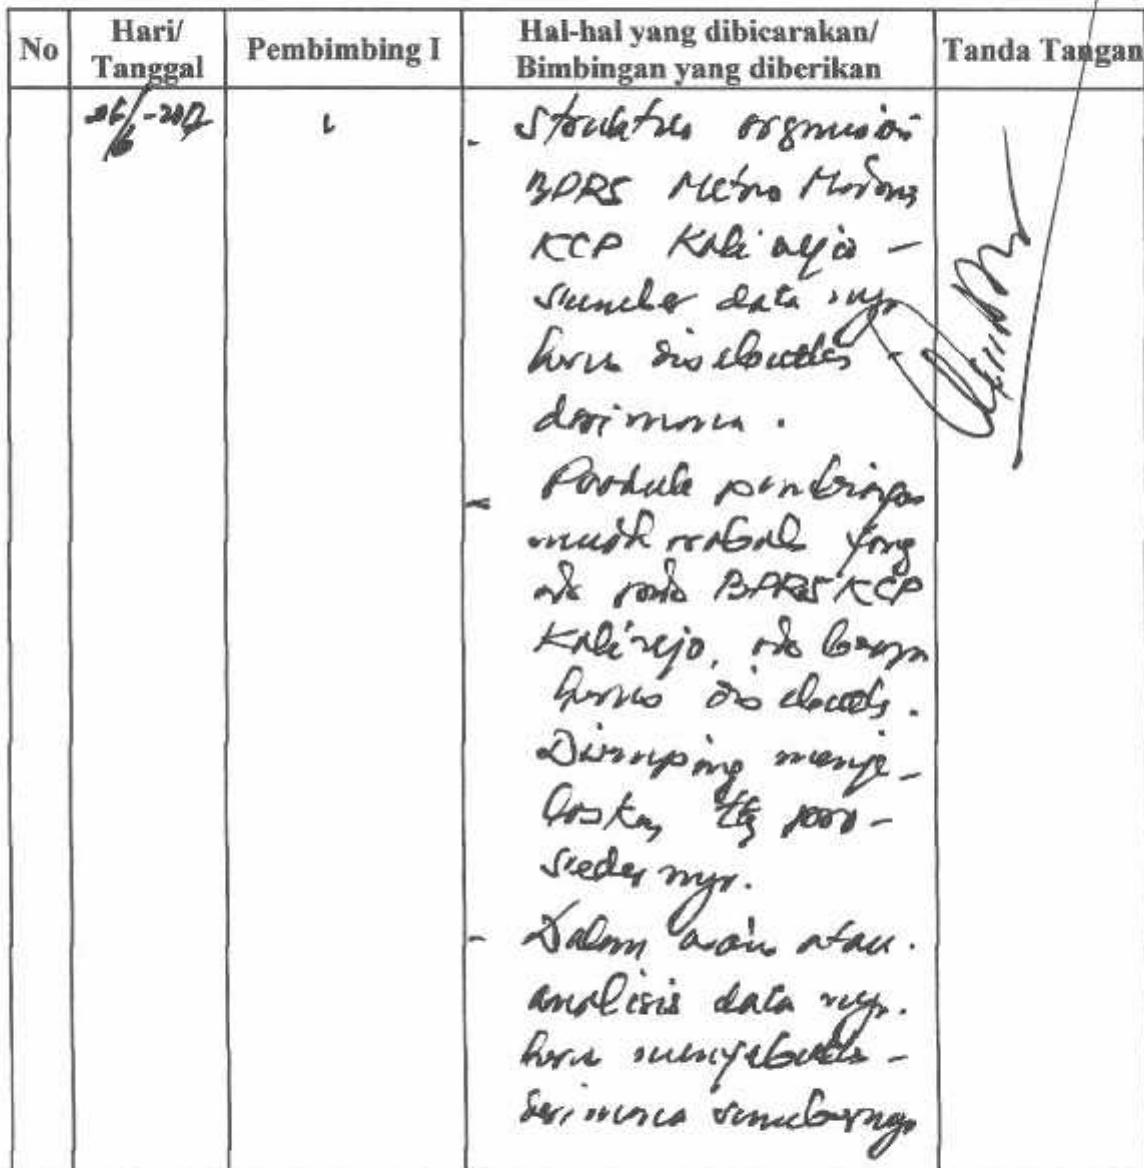 No
Hari/
Tanggal
Pembimbing I
Hal-hal yang dibicarakan/
Bimbingan yang diberikan
Tanda Tangan
- Struktur organisasi
BPRS Metro Madani
KCP Kalirejo -
sumber data nya
harus disebutkan -
dari mana.
- Produk
yang
ada pada BPRS KCP
Kalirejo, ada berapa
harus disebutkan.
Disamping menje-
laskan ttg pro-
sedur nya.
- Dalam atau
analisis data nya.
harus menyebutkan -
dari mana sumbernya